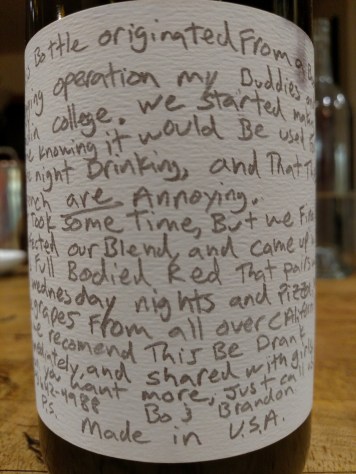 Bottle originated From a
operation my Buddies
in college. we started
knowing it would Be used
night Drinking, and That
are Annoying.
Took some Time, But we
our Blend, and came up
Full Bodied Red That pairs
wednesday nights and Pizza.
grapes From all over
recomend This Be Drank
and shared with
you want more, just call
Bo & Brandon
P.S.
Made in U.S.A.